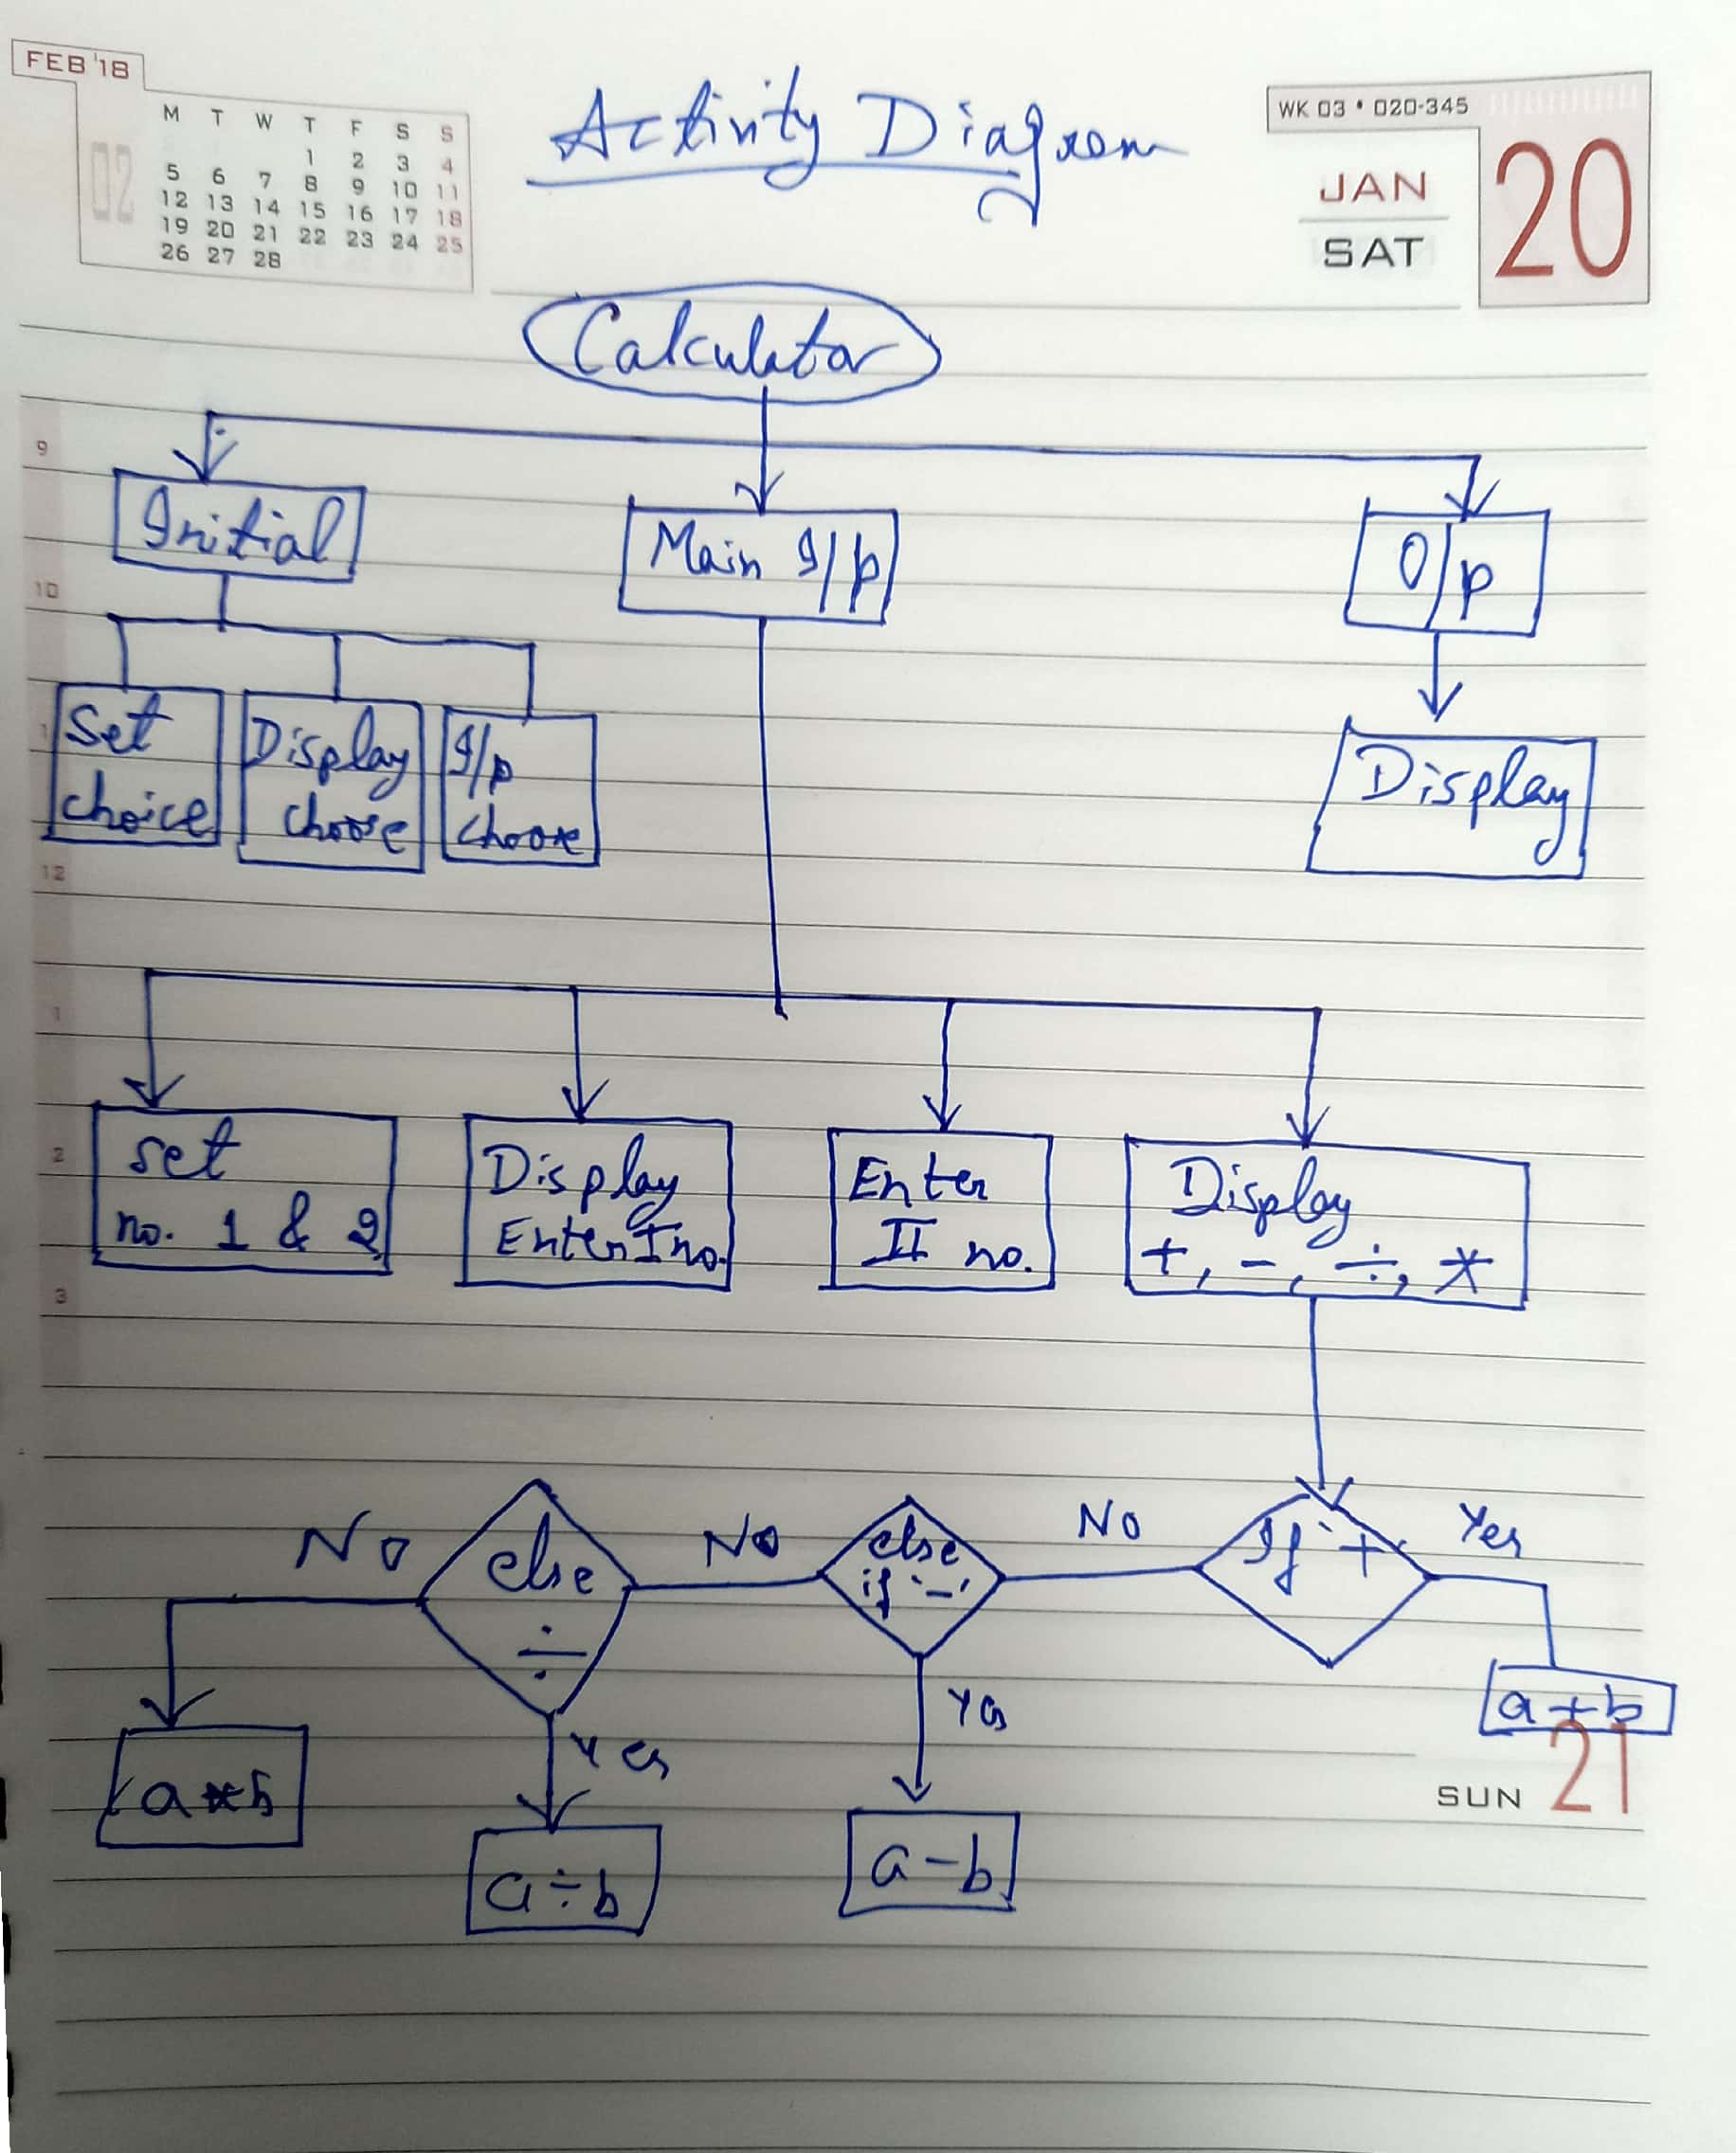 FEB '18
M T W T F S S
1 2 3 4
5 6 7 8 9 10 11
12 13 14 15 16 17 18
19 20 21 22 23 24 25
26 27 28
02
Activity Diagram
WK 03 • 020-345
JAN
SAT
20
Calculator
9
Initial
Main I/p
O/p
10
Set
choice
Display
choose
I/p
choose
Display
12
1
2
set
no. 1 & 2
Display
Enter I no.
Enter
II no.
Display
+, -, ÷, *
3
No
else
÷
No
else
if '-'
No
If '+'
Yes
Yes
Yes
a+b
a*b
a÷b
a-b
SUN 21